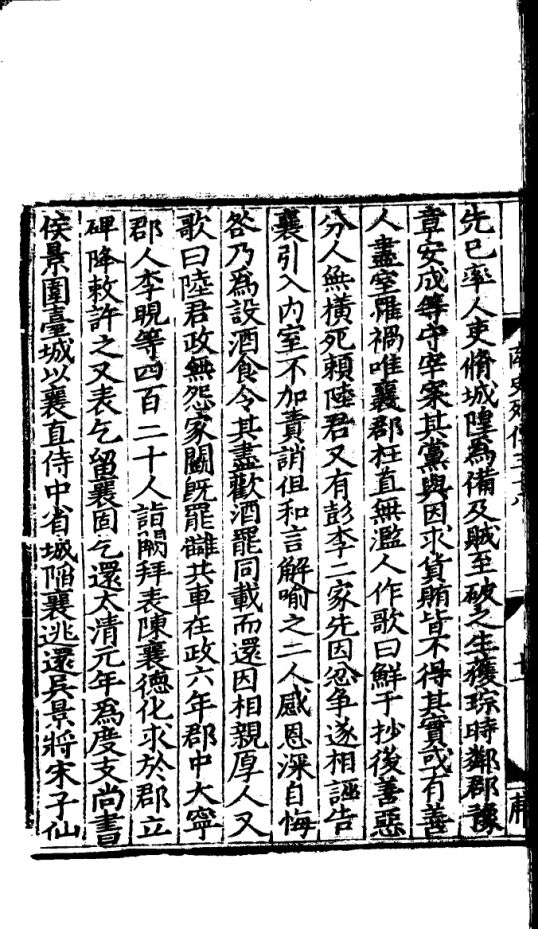 先已率人吏脩城隍爲備及賊至破之生獲琮時鄰郡豫
章安成等守宰案其黨與因求貨賄皆不得其實或有善
人盡室罹禍唯襄郡枉直無濫人作歌曰鮮于抄後善惡
分人無橫死賴陸君又有彭李二家先因忿爭遂相誣告
襄引入内室不加責誚但和言解喻之二人感恩深自悔
咎乃爲設酒食令其盡歡酒罷同載而還因相親厚人又
歌曰陸君政無怨家鬭旣罷讎共車在政六年郡中大寧
郡人李睍等四百二十人詣闕拜表陳襄德化求於郡立
碑降敕許之又表乞留襄固乞還太清元年爲度支尚書
侯景圍臺城以襄直侍中省城陷襄逃還吳景將宋子仙